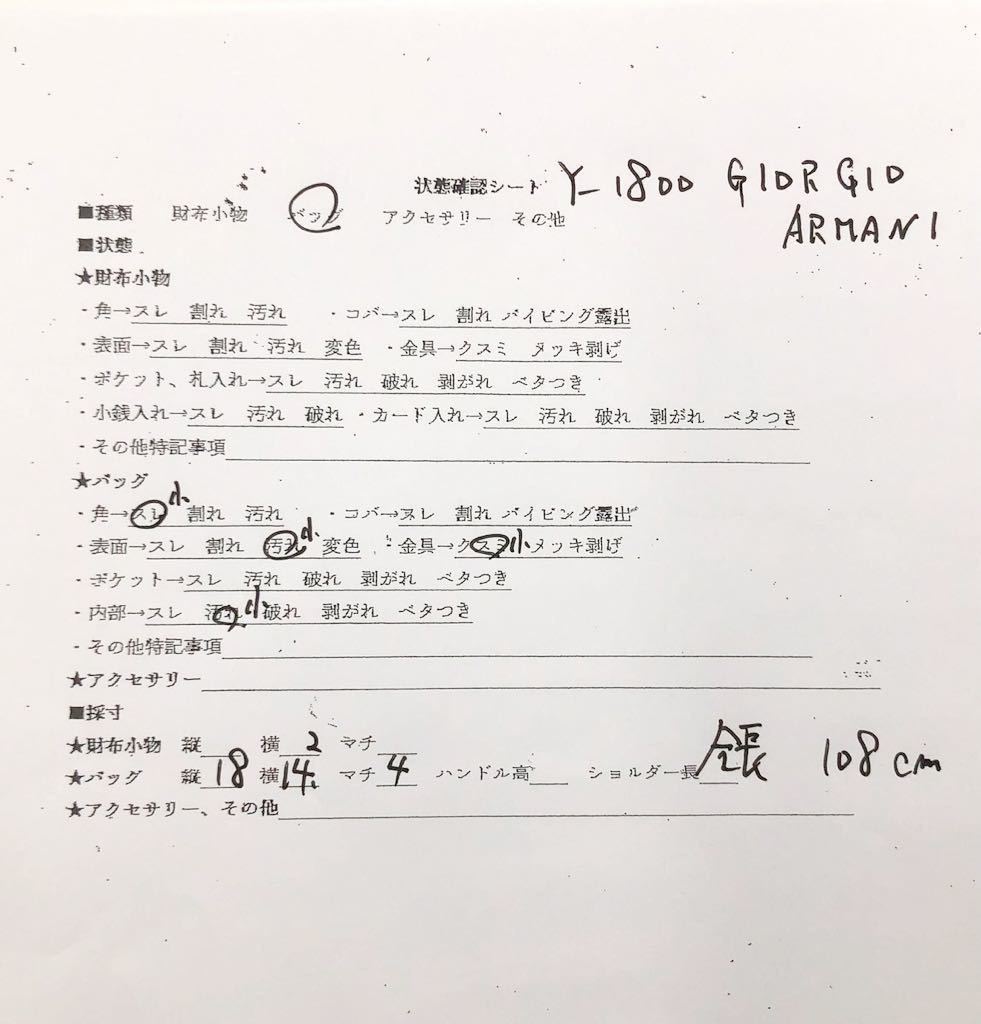 状態確認シート Y-1800 GIORGIO
ARMANI
■種類 財布小物 バッグ アクセサリー その他
■状態
★財布小物
・角→スレ 割れ 汚れ ・コバ→スレ 割れ パイピング露出
・表面→スレ 割れ 汚れ 変色 ・金具→クスミ メッキ剥げ
・ポケット、札入れ→スレ 汚れ 破れ 剥がれ ベタつき
・小銭入れ→スレ 汚れ 破れ ・カード入れ→スレ 汚れ 破れ 剥がれ ベタつき
・その他特記事項
★バッグ
・角→スレ小 割れ 汚れ ・コバ→スレ 割れ パイピング露出
・表面→スレ 割れ 汚れ小 変色 ・金具→クスミ小 メッキ剥げ
・ポケット→スレ 汚れ 破れ 剥がれ ベタつき
・内部→スレ 汚れ小 破れ 剥がれ ベタつき
・その他特記事項
★アクセサリー
■採寸
★財布小物 縦 横 2 マチ
★バッグ 縦 18 横 14. マチ 4 ハンドル高 ショルダー長 全長 108cm
★アクセサリー、その他